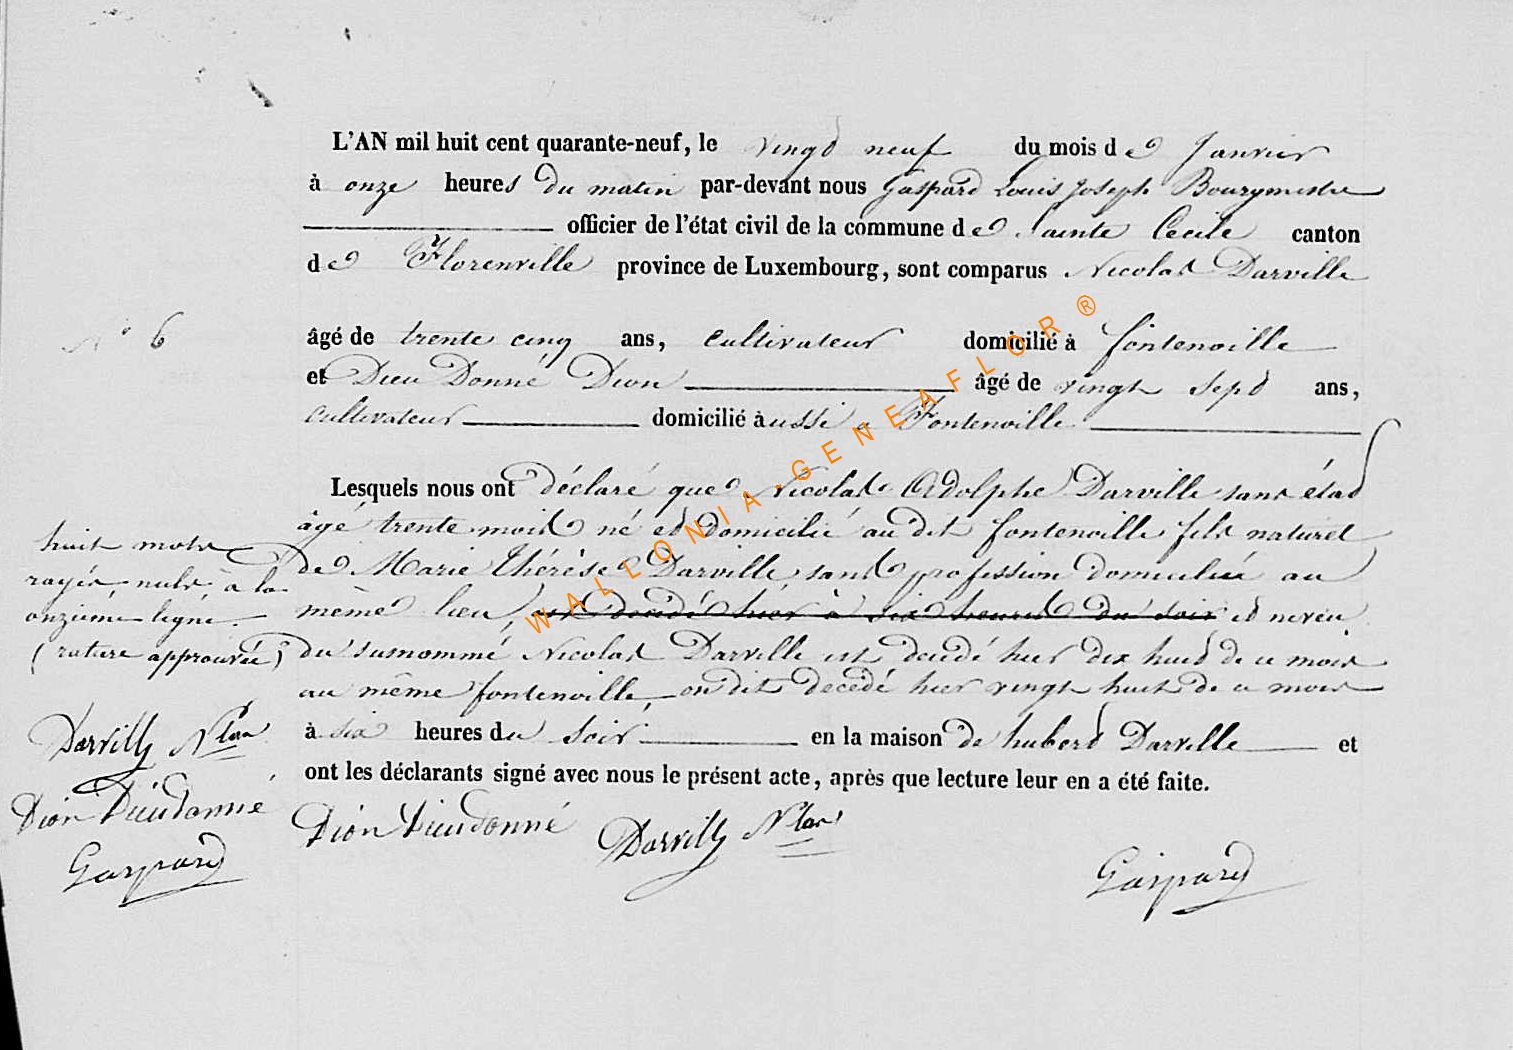 L'AN mil huit cent quarante-neuf, le vingt neuf du mois de Janvier
à onze heures du matin par-devant nous Gaspard Louis Joseph Bourgmestre
officier de l'état civil de la commune de Sainte Cecile canton
de Florenville province de Luxembourg, sont comparus Nicolas Darville
N° 6
âgé de trente cinq ans, cultivateur domicilié à fontenoille
et Dieu Donné Dion âgé de vingt sept ans,
cultivateur domicilié àussi a Fontenoille
Lesquels nous ont déclaré que Nicolas Adolphe Darville sans état
âgé trente mois né et domicilié au dit fontenoille fils naturel
de Marie Thérèse Darville sans profession domiciliée au
même lieu, est décédé hier à six heures du soir et neveu
du surnommé Nicolas Darville est décidé hier dix huit de ce mois
au même fontenoille, on dit décédé hier vingt huit de ce mois
à six heures du soir en la maison de hubert Darville et
ont les déclarants signé avec nous le présent acte, après que lecture leur en a été faite.
huit mots
rayés nuls, à la
onzième ligne.
(rature approuvée)
Darville Nlas
Dion Dieudonné
Gaspard
Dion Dieudonné Darville Nlas
Gaspard
WALLONIA-GENEAFLOR®